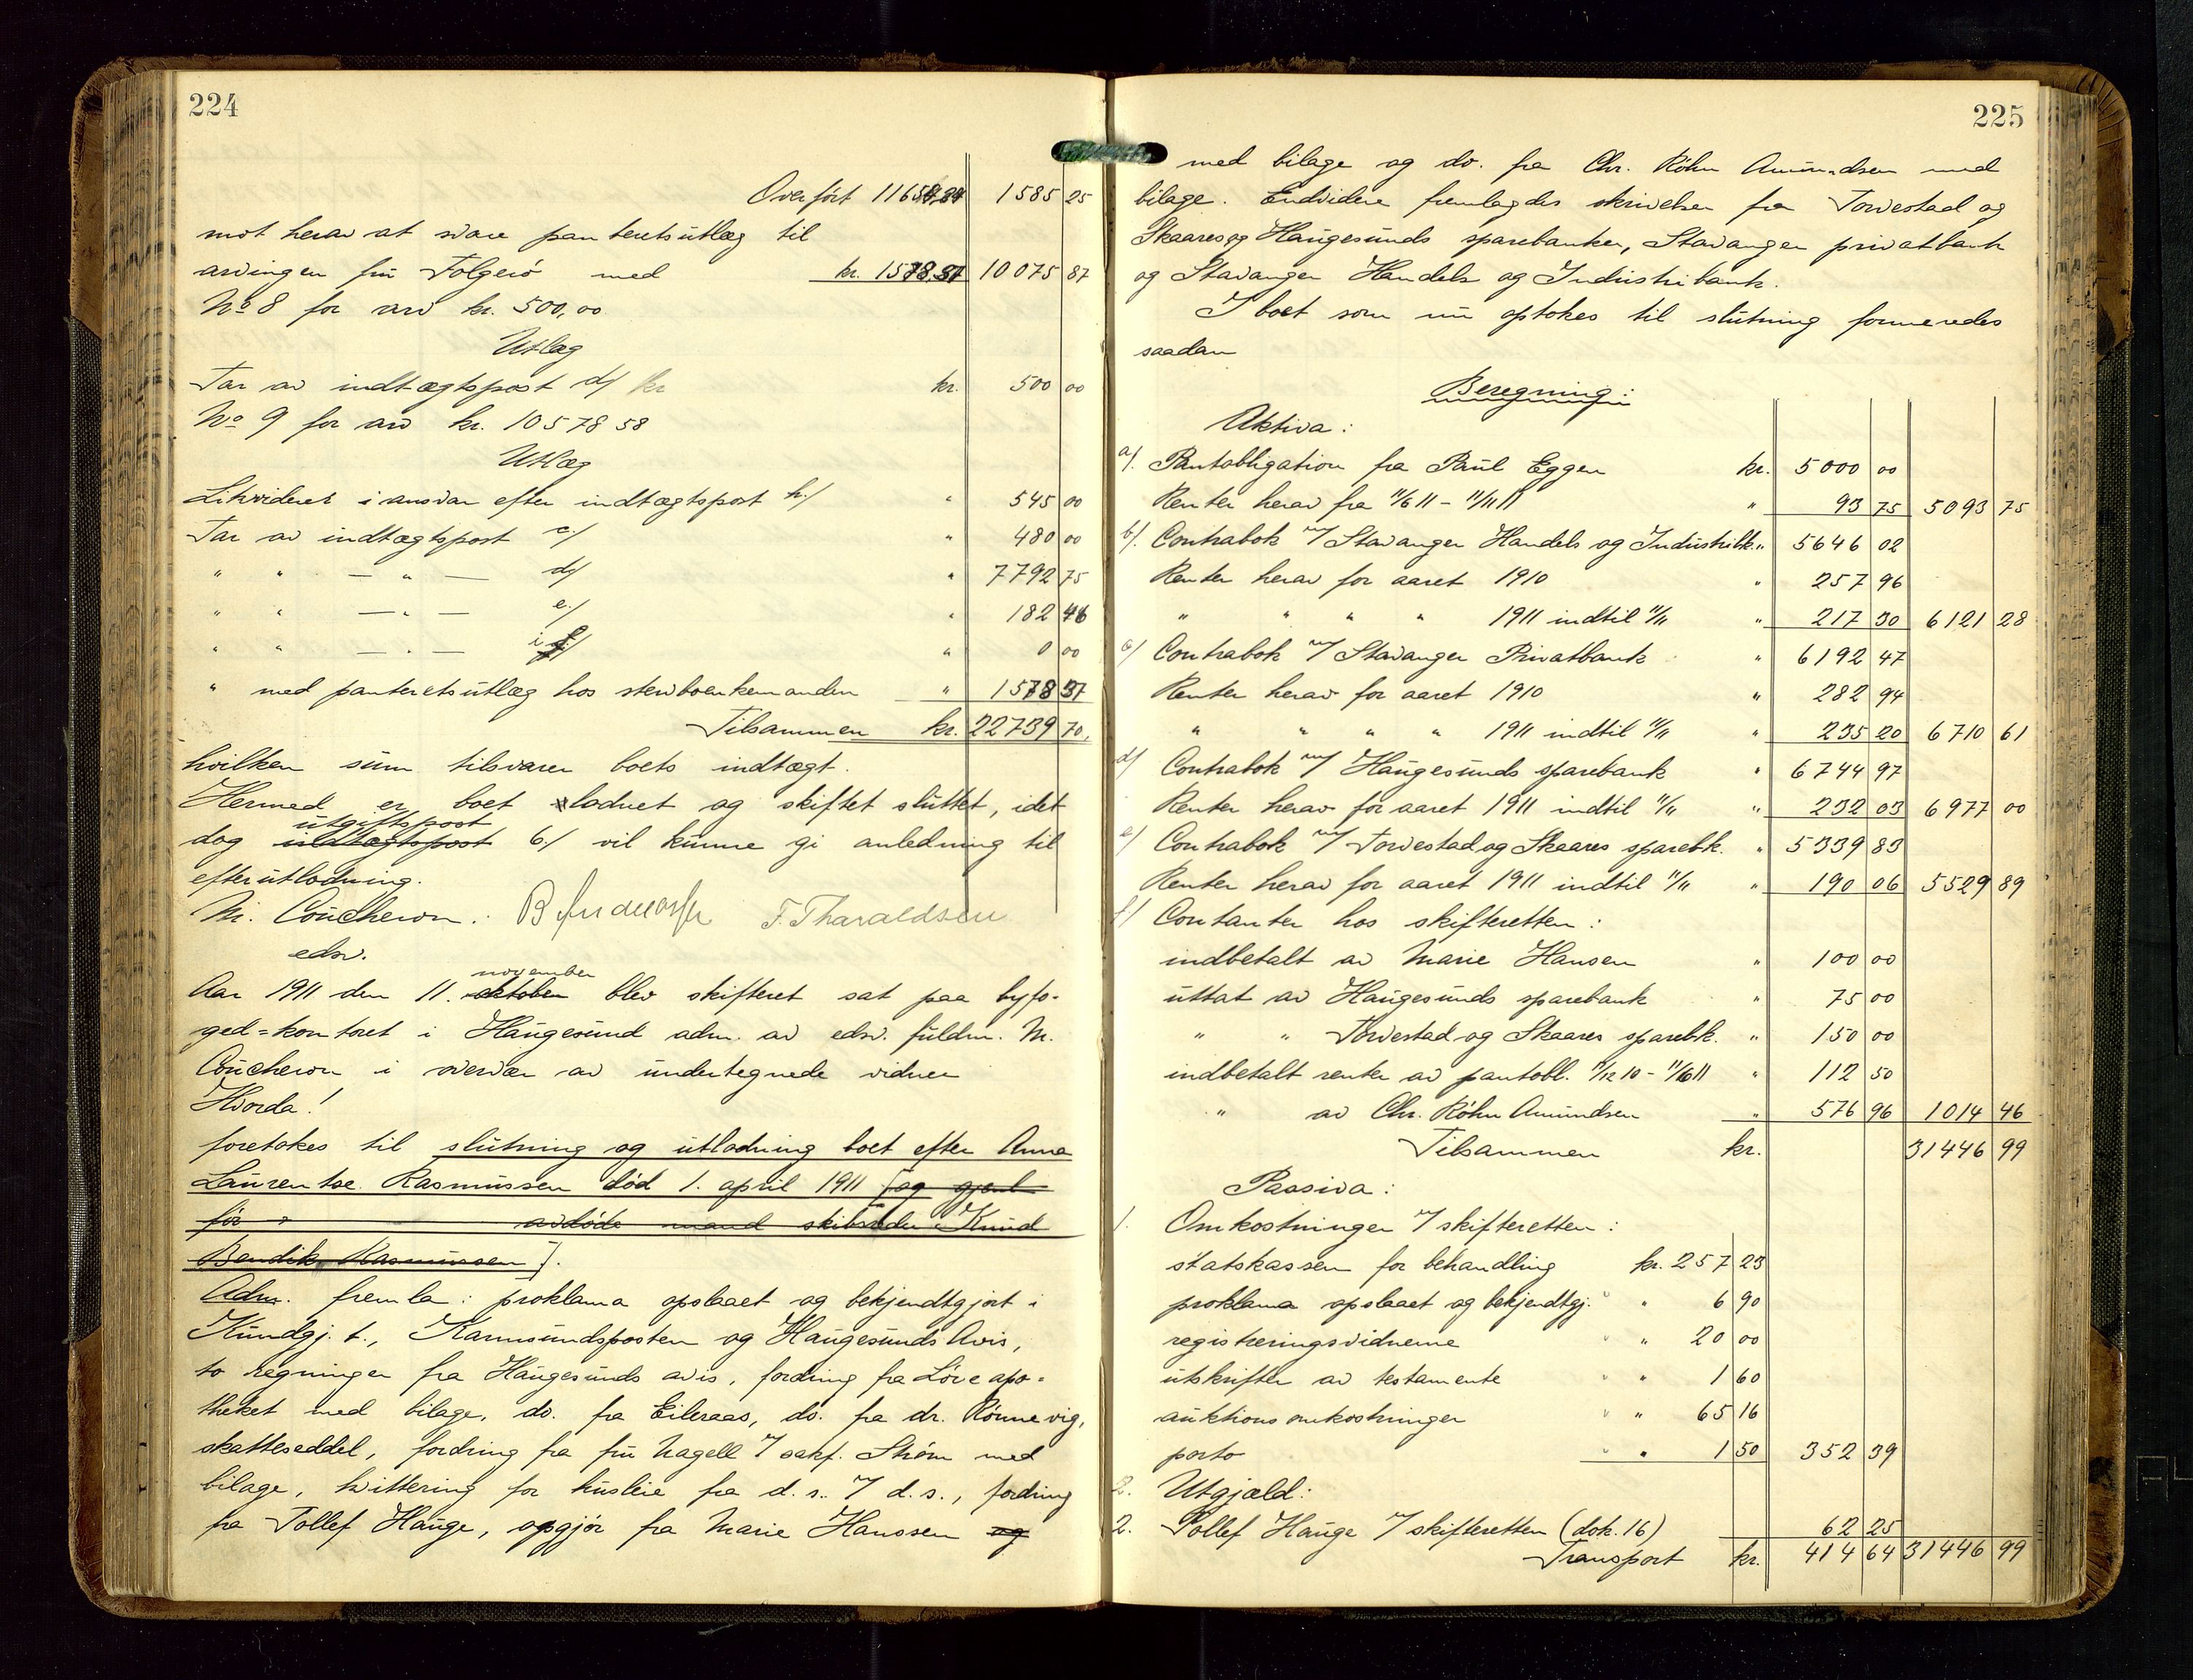 224
Overført 11654,24 1585 25
mot herav at svare panteretsutlæg til
arvingen fru Tolgerö med kr. 1578,37 10075 87
No 8 for arv kr. 500,00
Utlæg
Tar av indtægtspost d/ kr kr. 500 00
No 9 for arv kr. 10578 58
Utlæg
Likvideret i ansvar efter indtægtspost h./ " 545 00
Tar av indtægtspost c/ " 480 00
" " — " — d/ " 7792 75
" " — " — e/ " 182 46
" " — " — i " 0 00
" med panteretsutlæg hos stervboenkemanden " 1578 37
Tilsammen kr. 22739 70.
hvilken sum tilsvarer boets indtægt.
Hermed er boet utloddet og skiftet sluttet, idet
utgiftspost
dog indtægtspost 6./ vil kunne gi anledning til
efterutlodning.
M. Coucheron. B Andersen F. Tharaldsen
edsv.
november
Aar 1911 den 11. oktober blev skifteret sat paa byfo-
ged=kontoret i Haugesund adm. av edsv. fuldm. M.
Coucheron i overvær av undertegnede vidner
Hvorda!
foretokes til slutning og utlodning boet efter Anna
Laurentse Rasmussen död 1. april 1911 [og gjenl
för " avdöde mand skibsreder Knud
Bendik Rasmussen].
Adm. fremla: proklama opslaaet og bekjendtgjort i
Kundgj. t., Karmsundsposten og Haugesunds Avis,
to regninger fra Haugesunds avis, fordring fra Löveapo=
theket med bilage, do. fra Eileraas, do. fra dr. Rönnevig,
skatteseddel, fordring fra fru Nagell v/ sakf. Ström med
bilage, kvittering for husleie fra d. s. v/ d. s., fordring
fra Tollef Hauge, opgjör fra Marie Hanssen og
225
med bilage og do. fra Chr. Röhn Amundsen med
bilage. Endvidere fremlagdes skrivelser fra Torvestad og
Skaares og Haugesunds sparebanker, Stavanger privatbank
og Stavanger Handels og Industribank.
I boet som nu optokes til slutning formeredes
saadan
Beregning:
Aktiva:
a/. Pantobligation fra Paul Eggen kr. 5000 00
Renter herav fra 11/6 11 - 11/11 11 " 93 75 5093 75
b/. Contrabok m/ Stavanger Handels og Industribk. " 5646 02
Renter herav for aaret 1910 " 257 96
" " " " 1911 indtil 11/11 " 217 30 6121 28
c/ Contrabok m/ Stavanger Privatbank " 6192 47
Renter herav for aaret 1910 " 282 94
" " " " 1911 indtil 11/11 " 235 20 6710 61
d/ Contrabok m/ Haugesunds sparebank " 6744 97
Renter herav for aaret 1911 indtil 11/11 " 232 03 6977 00
e/ Contrabok m/ Torvestad og Skaares sparebk. " 5339 83
Renter herav for aaret 1911 indtil 11/11 " 190 06 5529 89
f/ Contanter hos skifteretten:
indbetalt av Marie Hansen " 100 00
uttat av Haugesunds sparebank " 75 00
" " Torvestad og Skaares sparebk. " 150 00
indbetalt renter av pantobl. 11/12 10 - 11/6 11 " 112 50
" av Chr. Röhn Amundsen " 576 96 1014 46
Tilsammen kr. 31446 99
Passiva:
1. Omkostninger v/ skifteretten:
statskassen for behandling kr. 257 23
proklama opslaaet og bekjendtgj. " " 6 90
registreringsvidnerne " " 20 00
utskrifter av testamente " " 1 60
auktionsomkostninger " " 65 16
porto " " 1 50 352 39
2. Utgjæld:
2. Tollef Hauge v/ skifteretten (dok. 16) 62 25
Transport kr. 414 64 31446 99